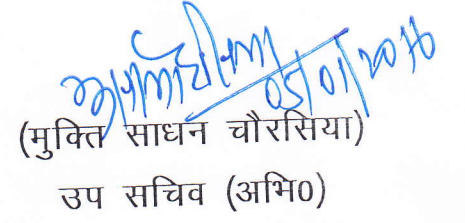 05/01/2016
(मुक्ति साधन चौरसिया)
उप सचिव (अभि0)